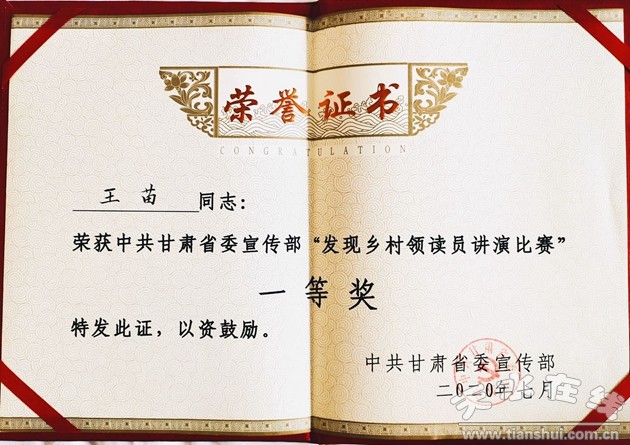 荣誉证书
CONGRATULATION
王苗 同志：
荣获中共甘肃省委宣传部“发现乡村领读员讲演比赛”
一等奖
特发此证，以资鼓励。
中共甘肃省委宣传部
二〇二〇年七月
天水在线
www.tianshui.com.cn